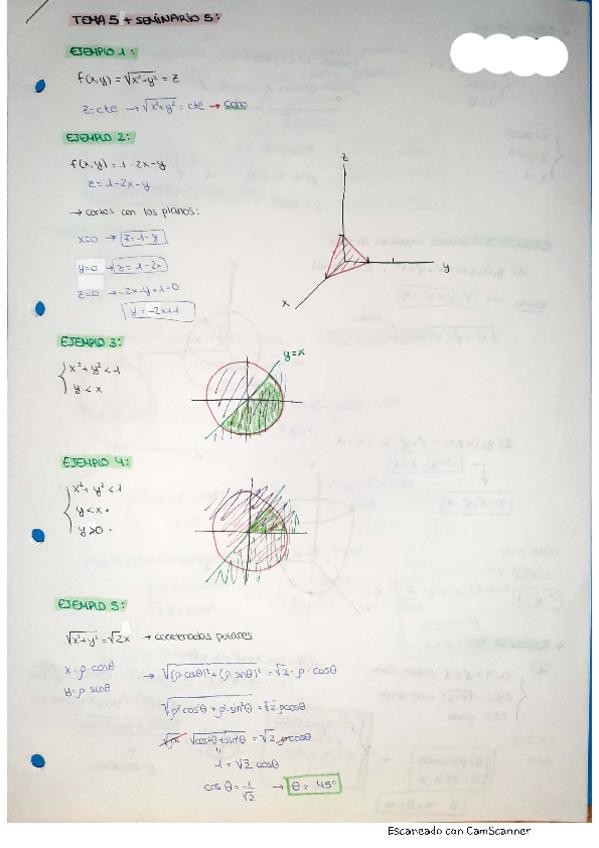 TEMA 5 + SEMINARIO 5:
EJEMPLO 1:
f(x,y) = √x²+y² = z
z=cte → √x²+y² = cte → cono
EJEMPLO 2:
f(x,y) = 1-2x-y
z = 1-2x-y
→ cortes con los planos:
x=0 → z=1-y
y=0 → z=1-2x
z=0 → -2x-y+1=0
y=-2x+1
z
y
x
EJEMPLO 3:
x²+y² < 1
y < x
y=x
EJEMPLO 4:
x²+y² < 1
y < x
y > 0
EJEMPLO 5:
√x²+y² = √2x → coordenadas polares
x = ρ·cosθ → √(ρ·cosθ)²+(ρ·sinθ)² = √2·ρ·cosθ
y = ρ sinθ
√ρ²cos²θ + ρ²·sin²θ = √2 ρcosθ
√ρ²·√cos²θ+sin²θ = √2·ρcosθ
1 = √2 cosθ
cosθ = 1/√2 → θ = 45°
Escaneado con CamScanner